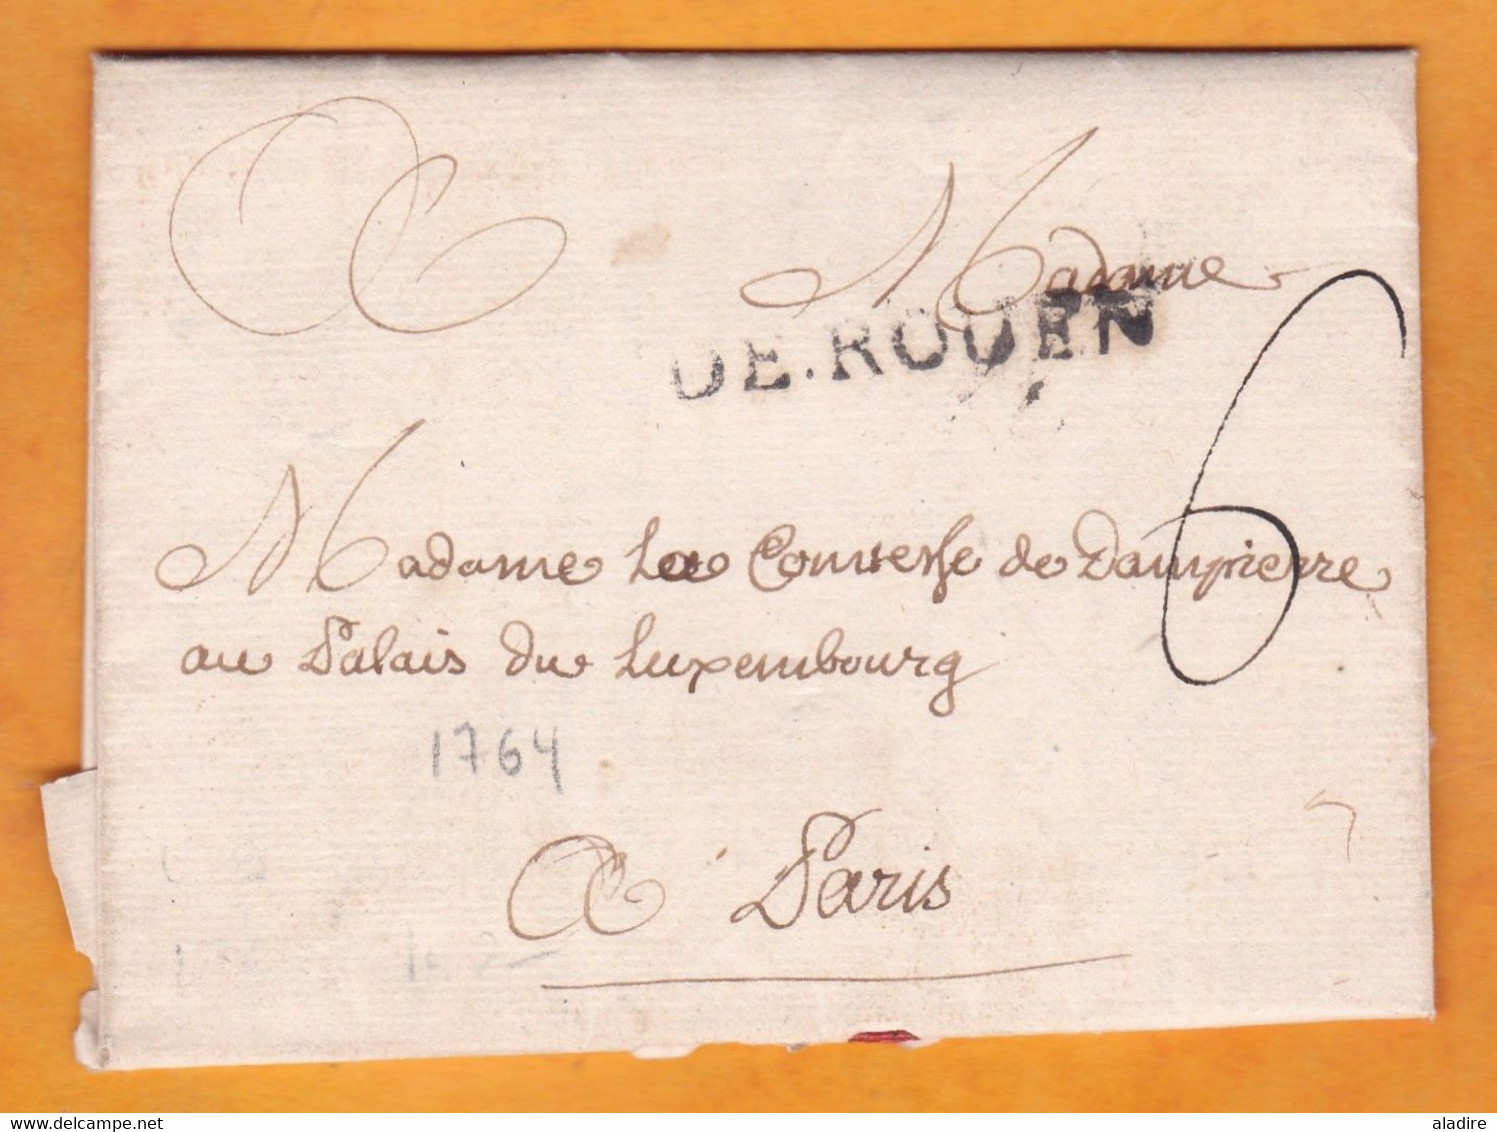 A Madame
DE.ROUEN
6
Madame La Comtesse de Dampierre
au Palais du Luxembourg
1764
A Paris
www.delcampe.net
aladire